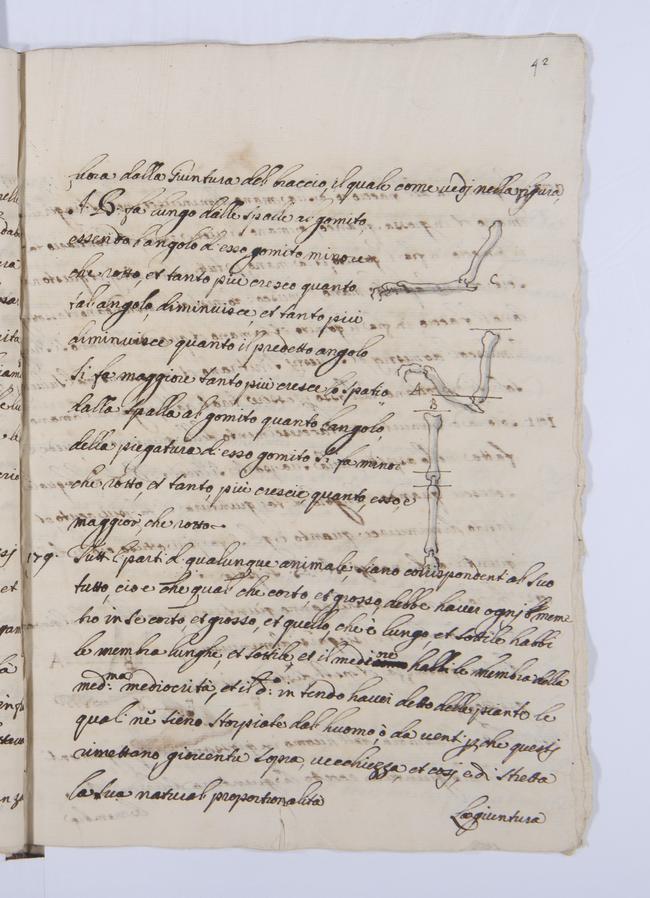 42
fuora dalla Giuntura del braccio, il quale come vedj nella figura,
A. B. fa lungo dalle spalle al gomito,
essendo l'angolo d'esso gomito minore
che retto, et tanto più cresce quanto
tal angolo diminuisce, et tanto più
diminuisce quanto il predetto angolo
si fa maggiore tanto più cresce lo spatio
dalla spalla al gomito quanto l'angolo
della piegatura d'esso gomito si fa minor
che retto, et tanto, più crescie quanto, esso, è
maggior che retto
C
A
B
179. Tutte le parti d qualunque animale, siano corrispondenti al suo
tutto, cioe che qual che corto et grosso, debbe haver ognj mem
bro in se corto et grosso, et quello che è lungo et sottile habbi
le membra lunghe, et sottile, et il mediocre habbi le membra della
med.ma mediocrità, et il d.o intendo haver detto delle piante le
quali nõ sieno storpiate dal huomo ò da venti, che questj
rimettano gioventu sopra vecchiezza, et cosi, è distrutta
la sua natural proportionalità
La giuntura